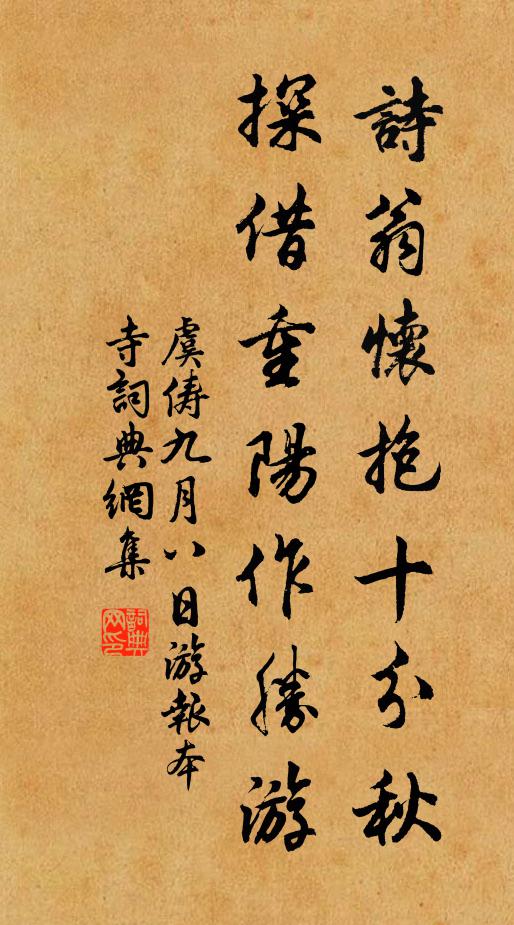 詩翁懷抱十分秋
探借重陽作勝游
虞儔九月八日游報本
寺詞典網集
詞典网印